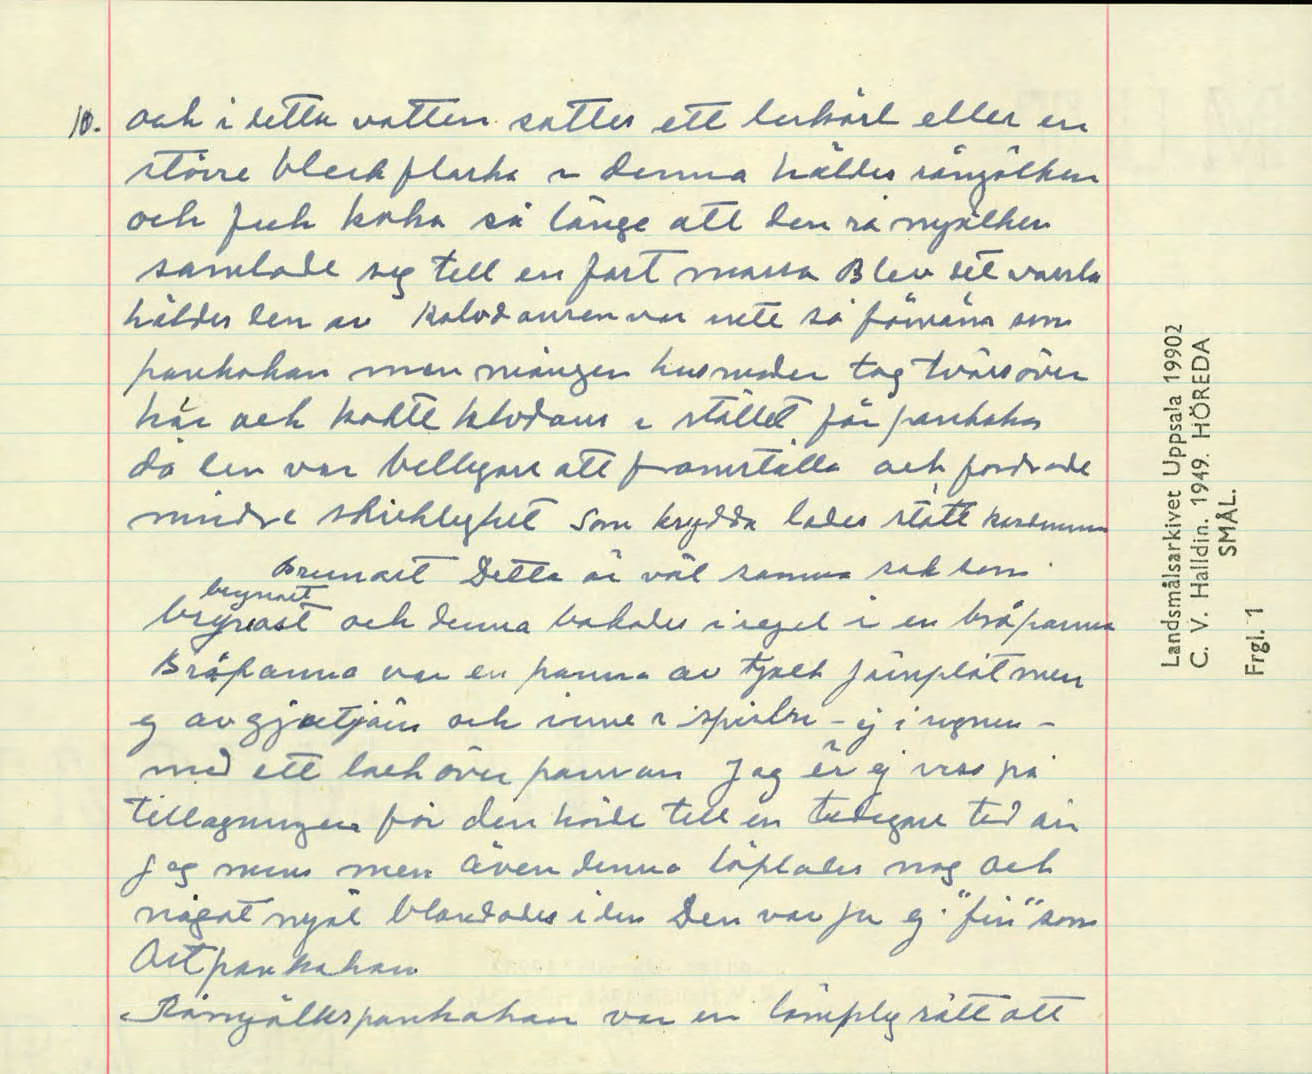 10. och i detta vatten sattes ett lerkärl eller en
större bleckflaska i denna hälldes råmjölken
och fick koka så länge att den rå mjölken
samlade sig till en fast massa Blev det vassla
hälldes den av Kalvdansen var inte så förnäm som
pankakan men mången husmoder tog tvärsöver
här och kokte klvdans i stället för pankaka
då den var billigare att framställa och fordrade
mindre skicklighet Som krydda lades stött kardemumma
Brunost Detta är väl samma sak som
brynost
brynost och denna bakades i regel i en bråpanna
Bråpanna var en panna av tjock järnplåt men
ej av gjutjärn och inne i spisen - ej i ugnen -
med ett lock över pannan Jag är ej viss på
tillagningen för den hörde till en tidigare tid än
jag minns men även denna löplades nog och
något mjöl blandades i den Den var ju ej "fin" som
Ostpankakan
Råmjölkspankakan var en lämplig rätt att
Landsmålsarkivet Uppsala 19902
C. V. Halldin. 1949. HÖREDA
SMÅL.
Frgl. 1